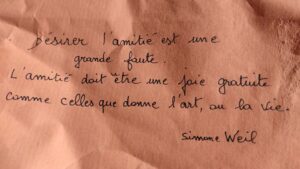 Désirer l'amitié est une
grande faute.
L'amitié doit être une joie gratuite
comme celles que donne l'art, ou la vie.
Simone Weil